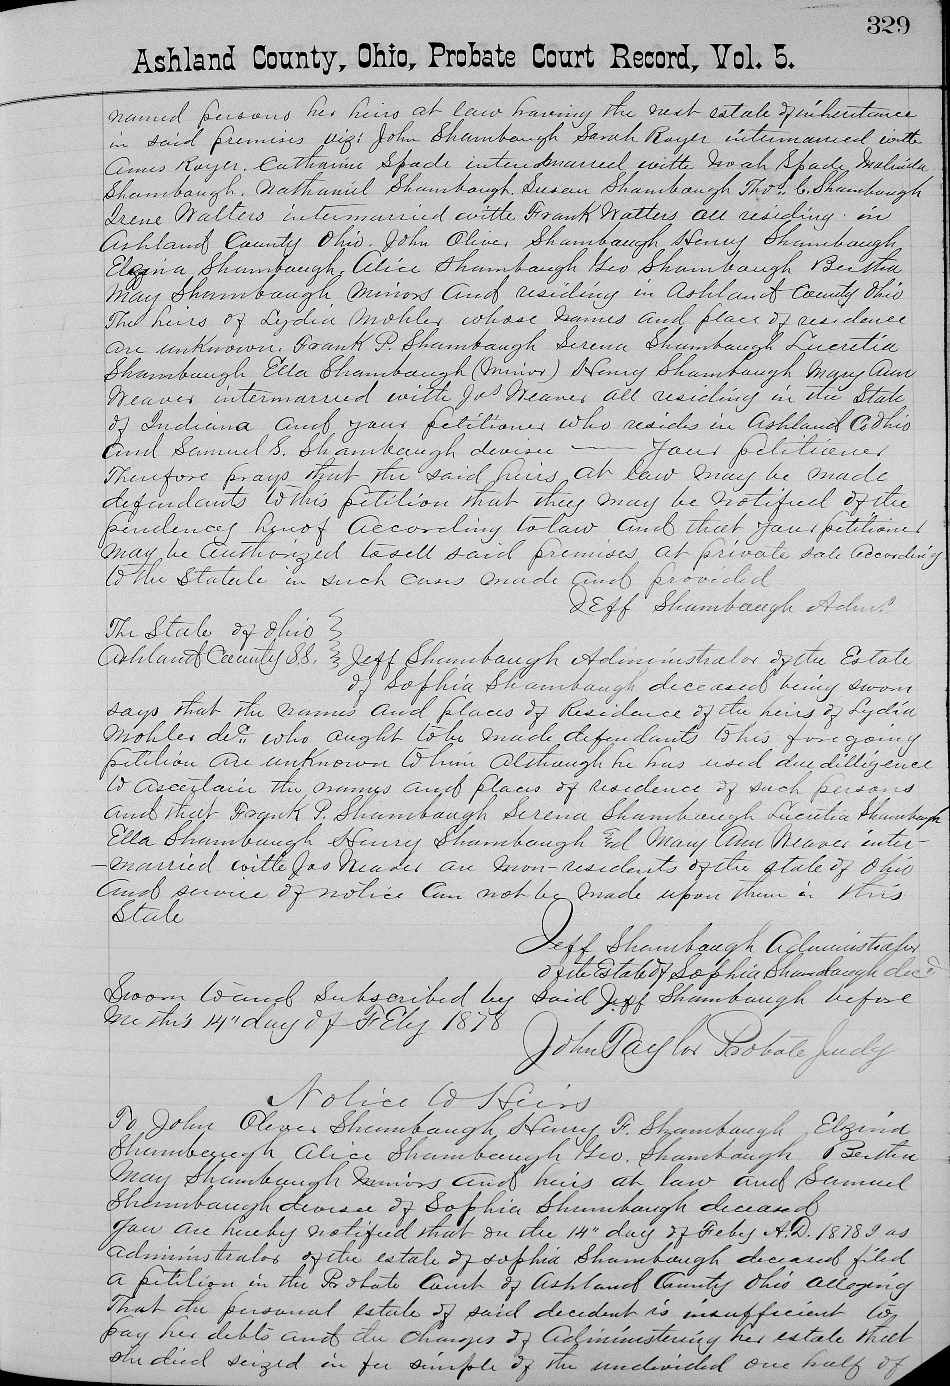 329
Ashland County, Ohio, Probate Court Record, Vol. 5.
named persons her heirs at law having the next estate of inheritance
in said premises viz: John Shambaugh Sarah Royer intermarried with
Amos Royer. Catharine Spade intermarried with Noah Spade Malinda
Shambaugh. Nathaniel Shambaugh. Susan Shambaugh Thos. C. Shambaugh
Irene Walters intermarried with Frank Walters all residing in
Ashland County Ohio. John Oliver Shambaugh Henry Shambaugh
Elzina Shambaugh. Alice Shambaugh Geo Shambaugh Bertha
May Shambaugh Minors and residing in Ashland County Ohio
The heirs of Lydia Mohler whose names and place of residence
are unknown. Frank P. Shambaugh Serena Shambaugh Lucretia
Shambaugh Ella Shambaugh (Minor) Henry Shambaugh Mary Ann
Weaver intermarried with Jos Weaver all residing in the State
of Indiana and your petitioner who resides in Ashland Co Ohio
and Samuel S. Shambaugh devisee — Your petitioner
Therefore prays that the said heirs at law may be made
defendants to this petition that they may be notified of the
pendency hereof according to law and that your petitioner
may be authorized to sell said premises at private sale according
to the Statute in such cases made and provided
Jeff Shambaugh Admr.
The State of Ohio
Ashland County S.S. Jeff Shambaugh Administrator of the Estate
of Sophia Shambaugh deceased being sworn
says that the names and places of Residence of the heirs of Lydia
Mohler decd. who aught to be made defendants to his foregoing
petition are unknown to him although he has used due dilligence
to ascertain the names and places of residence of such persons
and that Frank P. Shambaugh Serena Shambaugh Lucretia Shambaugh
Ella Shambaugh Henry Shambaugh and Mary Ann Weaver inter-
-married with Jos Weaver are non-residents of the state of Ohio
and service of notice can not be made upon them in this
State
Jeff Shambaugh Administrator
of the Estate of Sophia Shambaugh decd
Sworn to and Subscribed by said Jeff Shambaugh before
me this 14" day of Feby 1878
John Taylor Probate Judg
Notice to Heirs
To John Oliver Shambaugh, Henry F. Shambaugh Elzina
Shambaugh Alice Shambaugh Geo. Shambaugh Bertha
May Shambaugh Minors and heirs at law and Samuel
Shambaugh devisee of Sophia Shambaugh deceased
You are hereby notified that on the 14" day of Feby A.D. 1878 I as
administrator of the estate of Sophia Shambaugh deceased filed
a petition in the Probate Court of Ashland County Ohio alleging
That the personal estate of said decedent is insufficient to
pay her debts and the charges of Administering her estate that
she died seized in fee simple of the undivided one half of